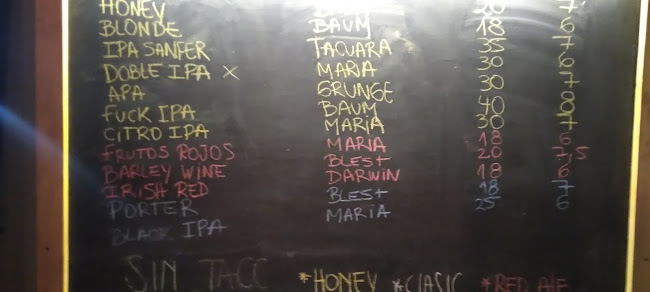 HONEY 20 7
BLONDE BAUM 18 6
IPA SANFER TAQUARA 35 7
DOBLE IPA x MARIA 30 6
APA GRUNGE 30 7
FUCK IPA BAUM 40 8
CITRO IPA MARIA 30 7
FRUTOS ROJOS MARIA 18 6
BARLEY WINE BLEST 20 7,5
IRISH RED DARWIN 18 6
PORTER BLEST 18 7
BLACK IPA MARIA 25 6
SIN TACC *HONEY *CLASIC *RED ALE